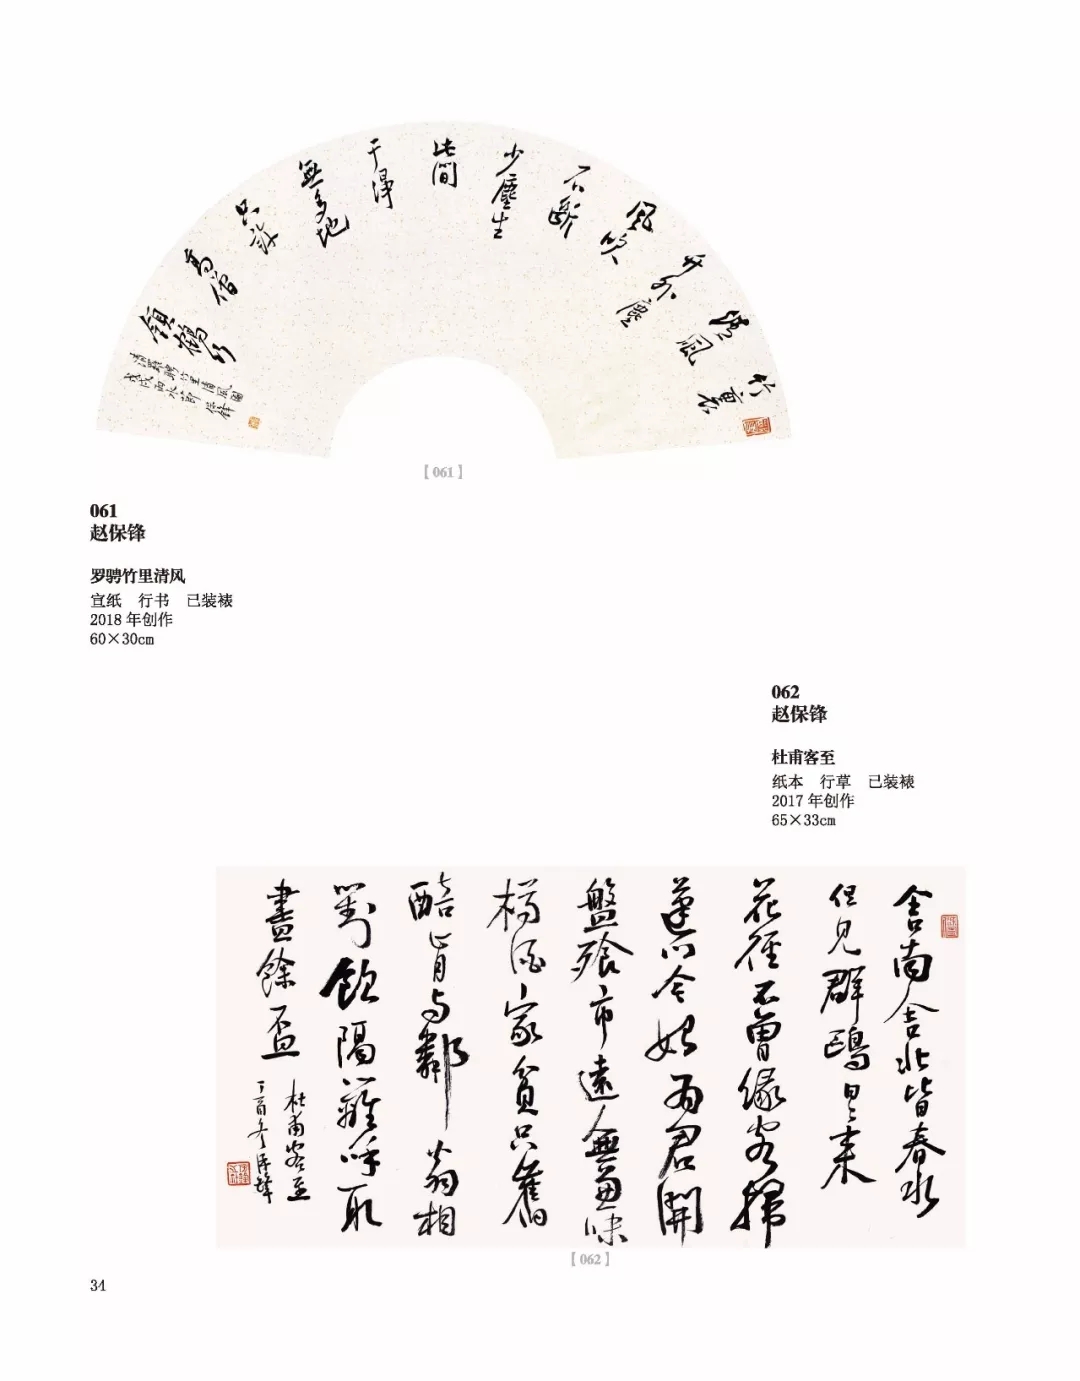 竹裏
清風
竹外塵
風吹
不斷
少塵生
此間
干淨
無多地
只許
高僧
領鶴行
清羅聘竹里清風圖
戊戌雨水節 保鋒
【061】
061
赵保锋
罗聘竹里清风
宣纸 行书 已装裱
2018 年创作
60×30cm
062
赵保锋
杜甫客至
纸本 行草 已装裱
2017 年创作
65×33cm
舍南舍北皆春水
但見群鷗日日來
花徑不曾緣客掃
蓬門今始為君開
盤飧市遠無兼味
樽酒家貧只舊
醅肯與鄰翁相
對飲隔籬呼取
盡餘盃
杜甫客至
丁酉冬保鋒
【062】
34